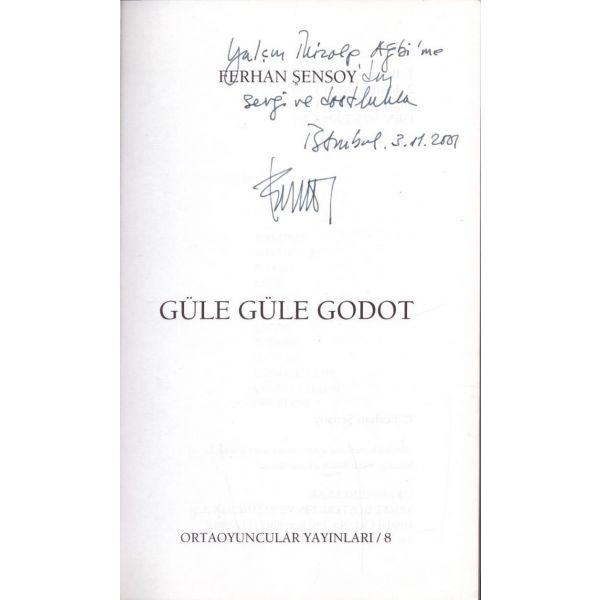 Yalçın Mizalp Ağbi'me
FERHAN ŞENSOY 'dan
sevgi ve dostlukla
İstanbul. 3.11.2001
GÜLE GÜLE GODOT
© Ferhan Şensoy
ORTAOYUNCULAR YAYINLARI / 8